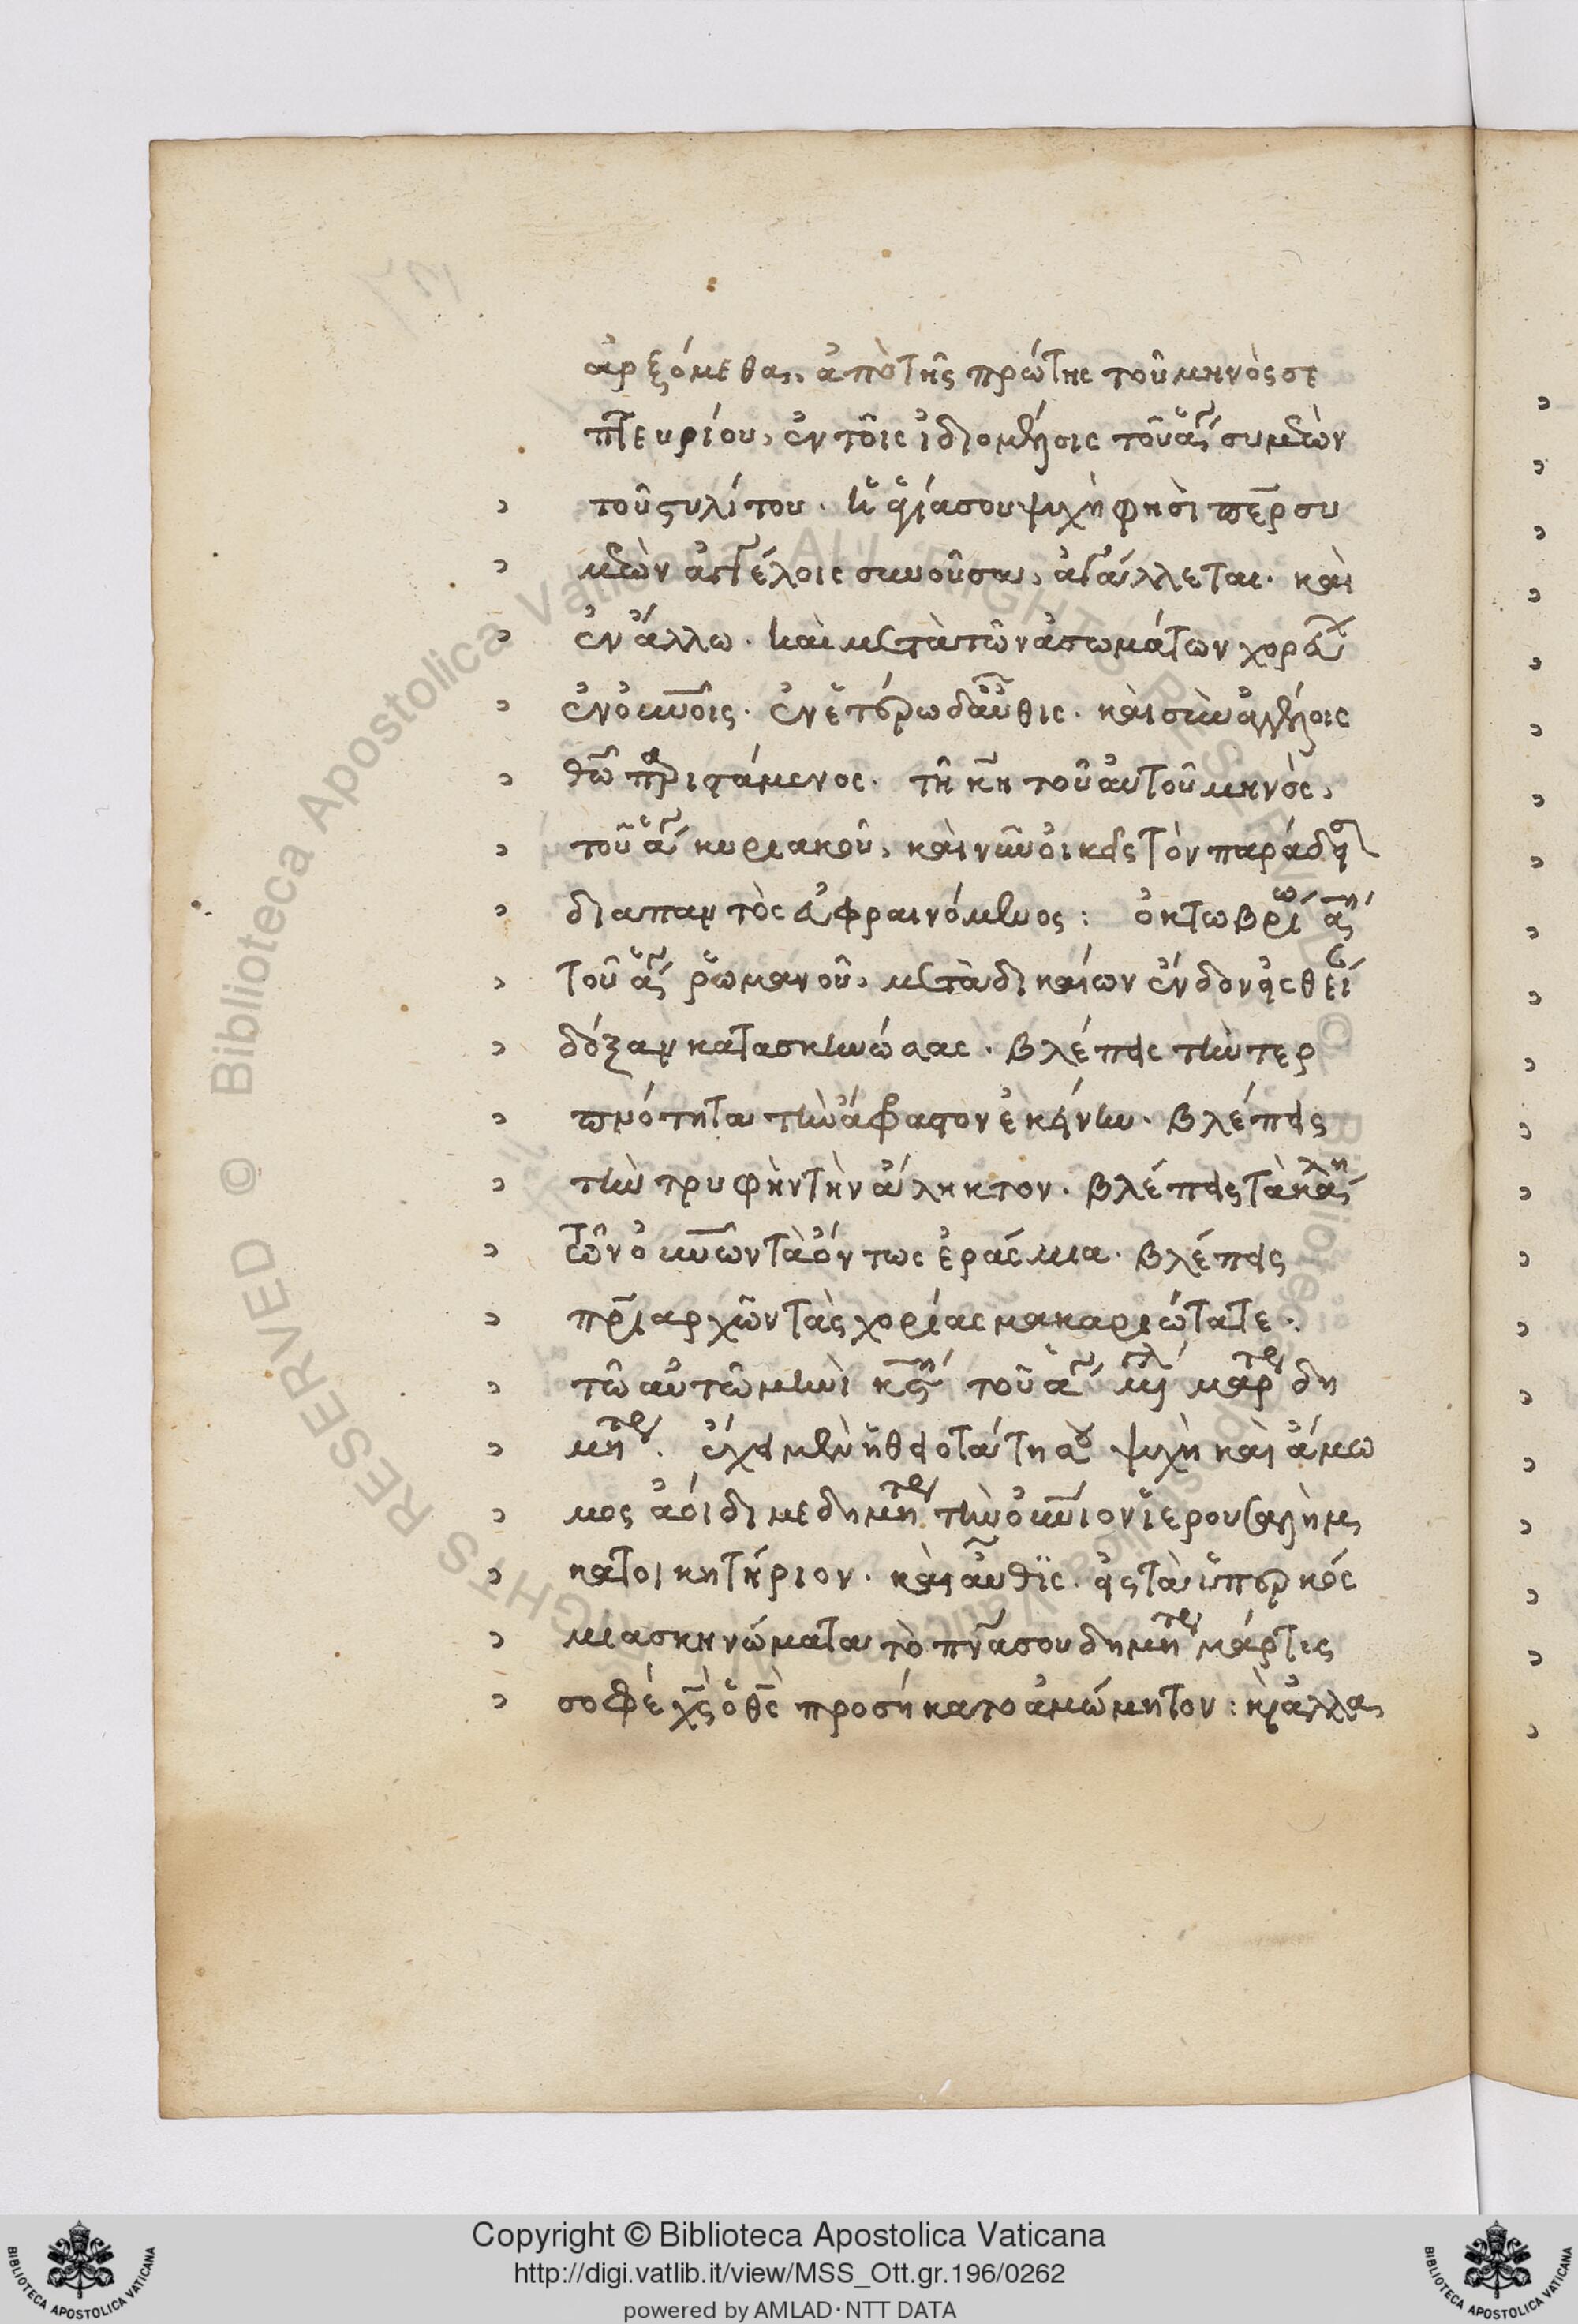 ἀρξόμεθα, ἀπὸ τῆς πρώτης τοῦ μηνὸς σε
πτευρίου, ἐν τοῖς ἰδιομέλοις τοῦ ἁγ συμεὼν
τοῦ στυλίτου. ἡ ἁγία σου ψυχὴ φησὶ περ συ
μεὼν ἀγγέλοις συνοῦσα, ἀγάλλεται. καὶ
ἐν ἄλλω. καὶ μετὰ τῶν ἀσωμάτων χορεύ
ἐν οὐνοῖς. ἐν ἑτέρω δ αὖθις. καὶ σὺν ἀγγέλοις
θῶ παριστάμενος. τῆ κη τοῦ αὐτοῦ μηνός,
τοῦ ἁγ κυριακοῦ, καὶ νῦν οἰκεῖς τὸν παράδει
διαπαντὸς εὐφραινόμενος: ὀκτωβρίω α
τοῦ ἁγ ῥωμανοῦ, μετὰ δικαίων ἔνδον εἰς θεί
δόξαν κατασκηνώσας. βλέπεις τὴν τερ
πνότητα τὴν ἄφραστον ἐκείνην. βλέπεις
τὴν τρυφὴν τὴν ἄληκτον. βλέπεις τὰ κάλη
τῶν οὐνῶν τὰ ὄντως ἐράσμια. βλέπεις
πριαρχῶν τὰς χορείας μακαριώτατε.
τῶ αὐτῶ μηνὶ κς τοῦ ἁγ μεγλ μαρτ δη
μητρ. ἔχει μὲν ἡ θειοτάτη σου ψυχὴ καὶ ἄμω
μος ἀοίδιμε δημητρ τὴν οὐνιον ἱερουσαλὴμ
κατοικητήριον. καὶ αὖθις. εἰς τὰ ὑπερκόσ
μια σκηνώματα τὸ πνα σου δημητρ μάρτυς
σοφὲ χς ὁ θς προσήκατο ἀμώμητον: κ ἄλλα,
Copyright © Biblioteca Apostolica Vaticana
http://digi.vatlib.it/view/MSS_Ott.gr.196/0262
powered by AMLAD·NTT DATA